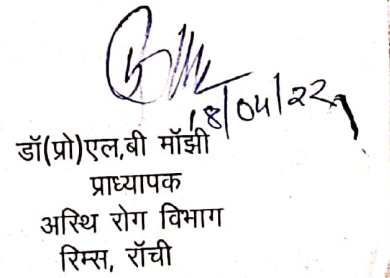 18/04/22
डॉ(प्रो)एल,बी मॉझी
प्राध्यापक
अस्थि रोग विभाग
रिम्स, रॉची